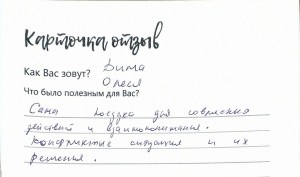 Карточка отзыв
Как Вас зовут? Дима
Олеся
Что было полезным для Вас?
Сама поездка для совместных
действий и взаимопонимания.
Конфликтные ситуации и их
решения.